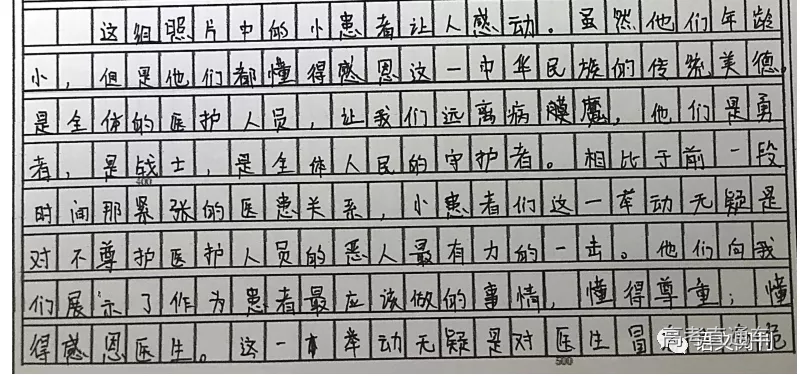 这组照片中的小患者让人感动。虽然他们年龄
小，但是他们都懂得感恩这一中华民族的传统美德。
是全体的医护人员，让我们远离病魔。他们是勇
者，是战士，是全体人民的守护者。相比于前一段
400
时间那紧张的医患关系，小患者们这一举动无疑是
对不尊护医护人员的恶人最有力的一击。他们向我
们展示了作为患者最应该做的事情，懂得尊重；懂
得感恩医生。这一举动无疑是对医生冒
500